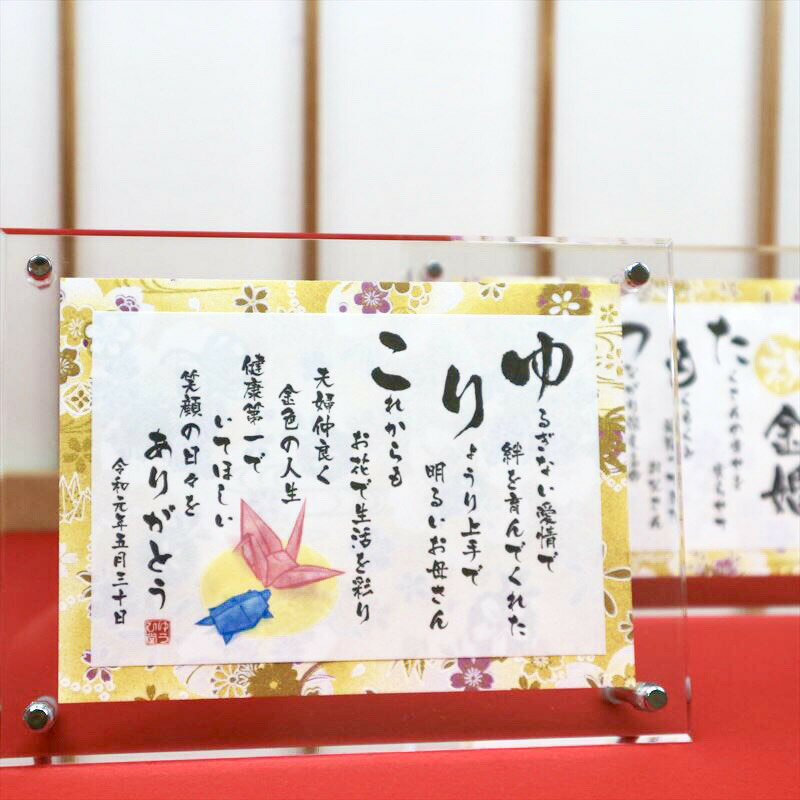 ゆるぎない愛情で
絆を育んでくれた
りょうり上手で
明るいお母さん
これからも
お花で生活を彩り
夫婦仲良く
金色の人生
健康第一で
いてほしい
笑顔の日々を
ありがとう
令和元年五月三十日
祝
金婚
た
も
つ